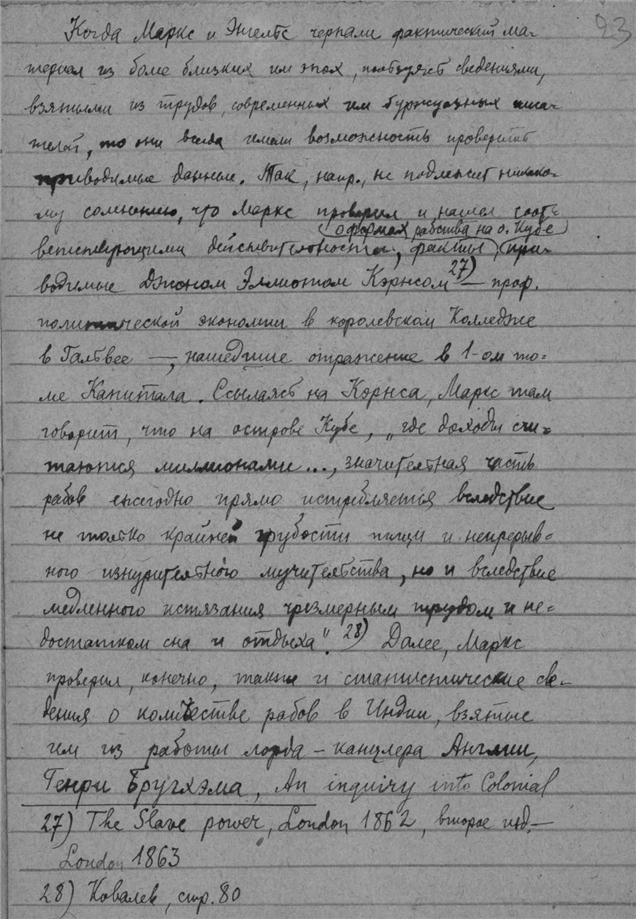 23
Когда Маркс и Энгельс черпали фактический ма-
териал из более близких им эпох, пользуясь сведениями,
взятыми из трудов, современных им буржуазных писа-
телей, то они всегда имели возможность проверить
приводимые данные. Так, напр., не подлежит никако-
му сомнению, что Маркс проверил и нашел соот-
о формах рабства на о. Кубе
ветствующими действительности, факты, при-
водимые Джоном Эллиотом Кэрнсом 27) — проф.
политической экономии в королевском Колледже
в Галвее —, нашедшие отражение в 1-ом то-
ме Капитала. Ссылаясь на Кэрнса, Маркс там
говорит, что на острове Кубе, „где доходы счи-
таются миллионами..., значительная часть
рабов ежегодно прямо истребляется вследствие
не только крайней грубости пищи и непрерыв-
ного изнурительного мучительства, но и вследствие
медленного истязания чрезмерным трудом и не-
достатком сна и отдыха". 28) Далее, Маркс
проверил, конечно, также и статистические све-
дения о количестве рабов в Индии, взятые
им из работы лорда-канцлера Англии,
Генри Бругхэма, An inquiry into Colonial
27) The Slave power, London 1862, второе изд. —
London 1863
28) Ковалев, стр. 80